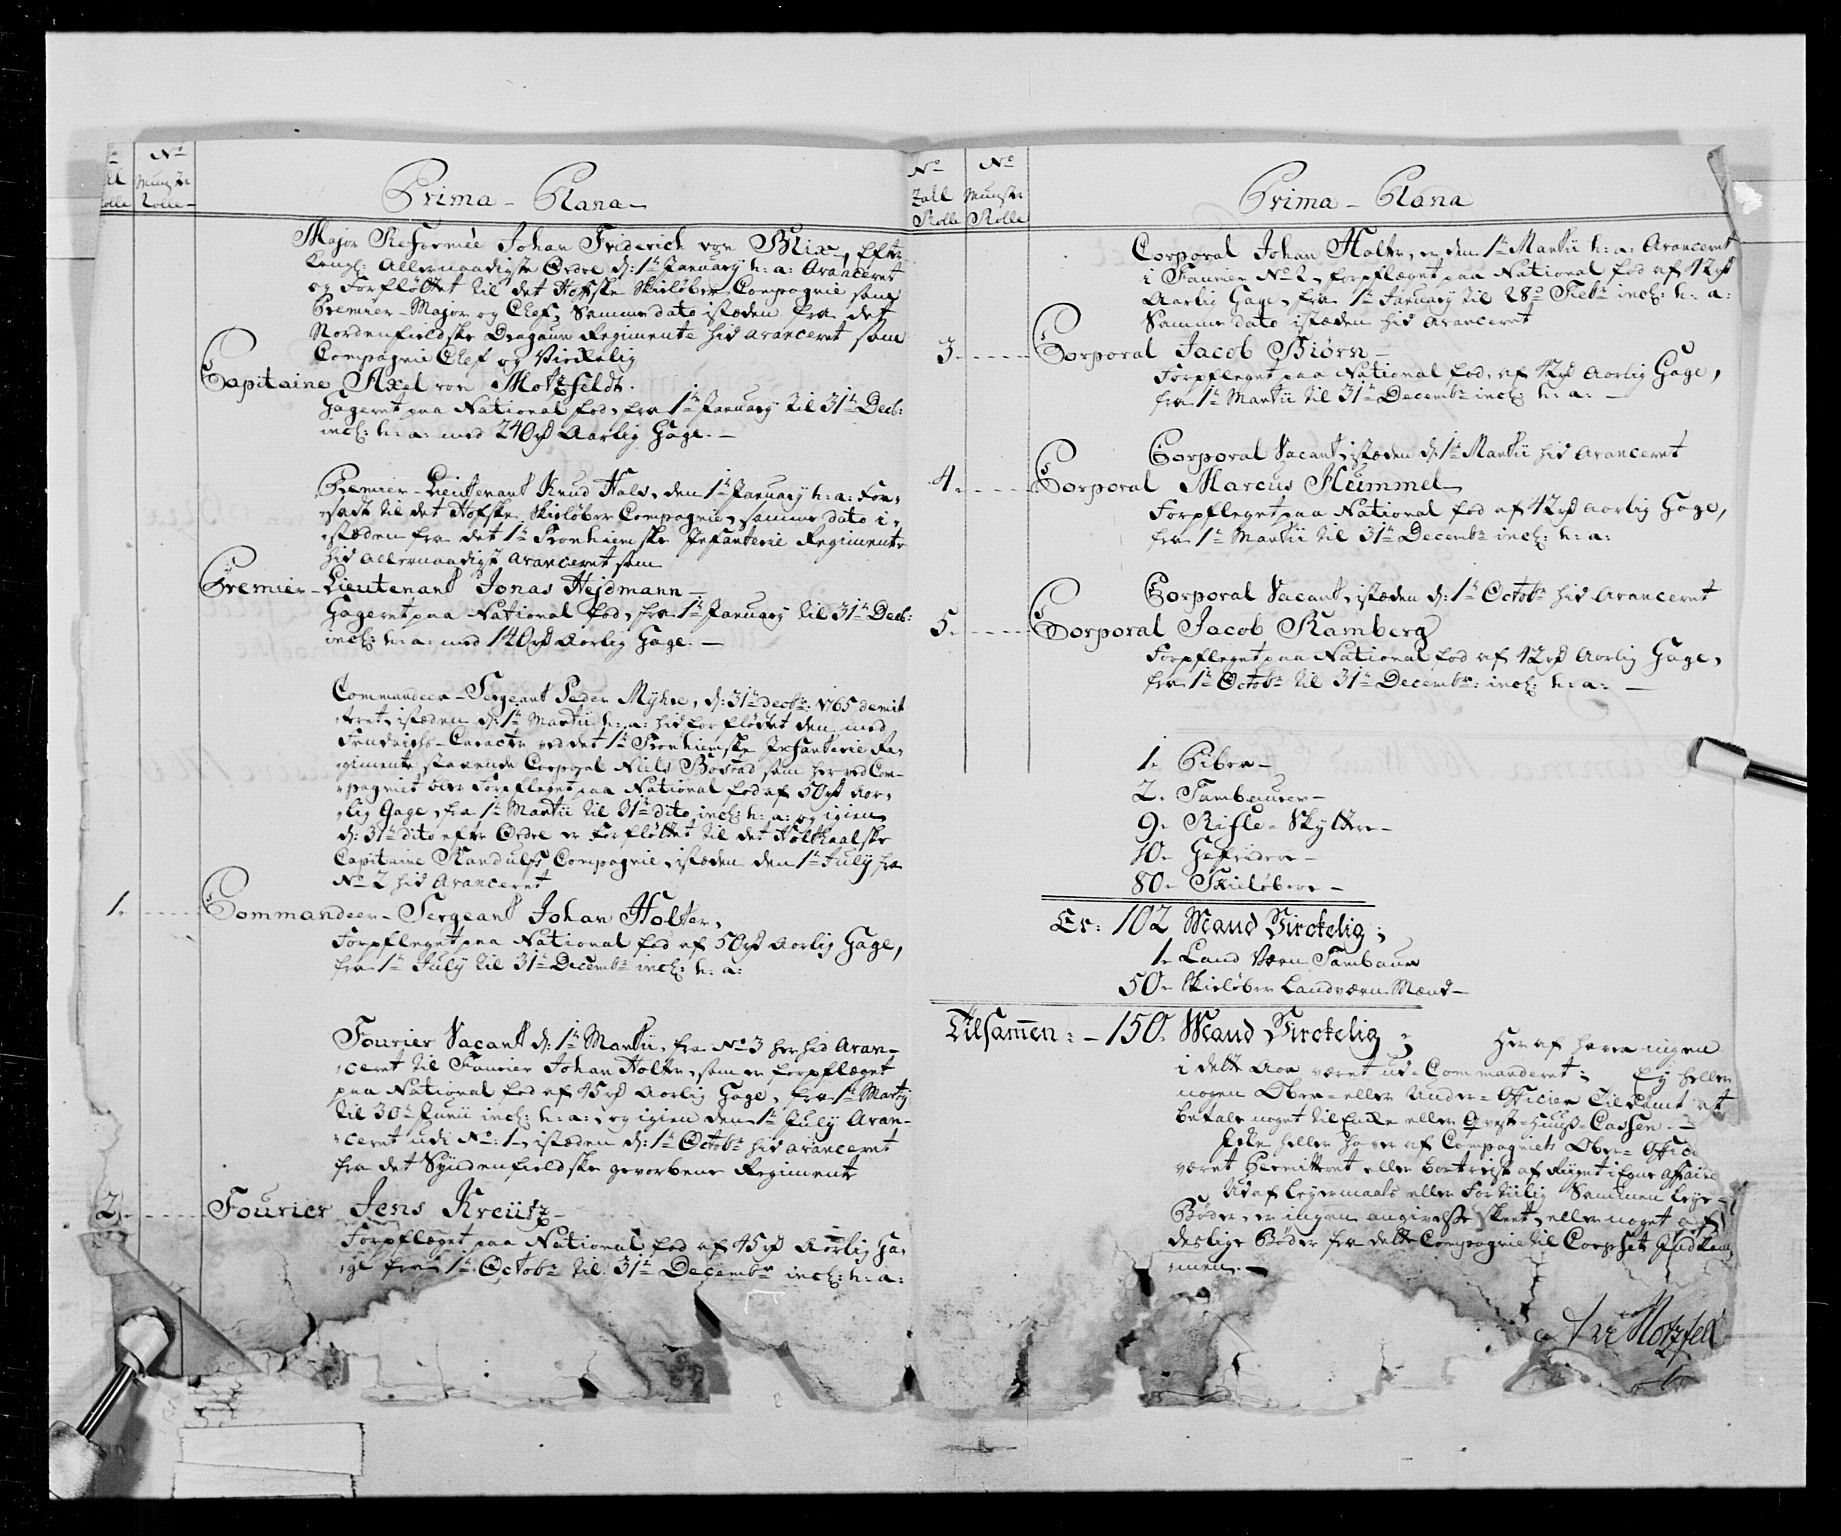 No
Munst:
Rolle
Prima - Plana
Major Reformèe Johan Friderich von Blix, efter
Kongl: Allernaadigste Ordre d: 1te January h: a: Avanceret
og Forfløttet til det Hofske Skieløber Compagnie som
Premier-Major og Chef, Samme dato isteden fra det
Nordenfieldske Dragoun Regimente hid avanceret som
Compagnie Chef og Virkelig
Capitaine Axel von Motzfeldt.
Gageret paa National fod, fra 1te January til 31te Decb:
incl: h: a: med 240 rd Aarlig Gage. -
Premier-Lieutenant Knud Hals, den 1te January h: a: For-
-sadt til det Hofske Skieløber Compagnie, samme dato i-
-steden fra det 1te Tronhiemske Infanterie Regimente
hid allernaadigst avanceret som
Premier-Lieutenant Jonas Hejdmann -
Gageret paa National fod, fra 1te January til 31te Decb:
incl: h: a: med 140 rd Aarlig Gage. -
Commandeer-Sergeant Peder Myhre, d: 31te Decbr: 1765 demit-
-teret, isteden d: 1te Martii h: a: hid forfløttet den med
Fendrichs-Caracter ved det 1te Tronhiemske Infanterie Re-
-gimente staaende Corporal Niels Bostad som her ved Com-
-pagniet blev Forpfleget paa National fod af 50 rd Aar-
-lig Gage, fra 1te Martii til 31te dito incl: h: a: og igien
d: 31te dito efter Ordre er forfløttet til det Holtaalske
Capitaine Randulfs Compagnie, isteden den 1te July fra
No 2 hid Avanceret
1. Commandeer-Sergeant Johan Holter,
Forpfleget paa National fod af 50 rd Aarlig Gage,
fra 1te July til 31te Decembr incl: h: a:
Fourier Vacant d: 1te Martii, fra No 3 her hid Avan-
-ceret til Fourier Johan Holter, som er forpflæget
paa National fod af 45 rd Aarlig Gage, fra 1te Martij
til 30te Junii incl: h: a:, og igien den 1te July Avan-
-ceret udi No: 1, isteden d: 1te Octobr hid avanceret
fra det Syndenfieldske gevorbene Regimente
2. Fourier Jens Kreütz -
Forpflæget paa National fod af 45 rd Aarlig Ga-
-ge fra 1te Octobr til 31te Decembr incl: h: a:
No No
Zall Munst:
Rolle Rolle
Prima - Plana
Corporal Johan Holter, er den 1te Martii h: a: Avanceret
i Fourier No 2, forpflæget paa National fod af 42 rd
Aarlig Gage, fra 1te January til 28de Febr incl: h: a:
Samme dato isteden hid Avanceret
3. Corporal Jacob Biørn -
Forpfleget paa National fod, af 42 rd Aarlig Gage,
fra 1te Martii til 31te Decembr incl: h: a: -
Corporal Vacant, isteden d: 1te Martii hid Avanceret
4. Corporal Marcus Heümmel
Forpfleget paa National fod af 42 rd Aarlig Gage,
fra 1te Martii til 31te Decembr incl: h: a:
Corporal Vacant, isteden d: 1te Octobr hid Avanceret
5. Corporal Jacob Ramberg
Forpfleget paa National fod af 42 rd Aarlig Gage,
fra 1te Octobr til 31te Decembr: incl: h: a: -
1. Piber -
2. Tambourer -
9. Rifle-Skyttere -
10. Gefridere -
80. Skieløbere -
Er: 102 Mand Virckelig;
1. Land Værn Tambour
50. Skieløber Landværn Mænd -
Tilsamen: - 150. Mand Virckelig; Her af haver ingen
i dette Aar været ud-Commanderet; Ey heller
nogen Ober- eller Under-Officier Tildømt at
betale noget til Enke eller Qvest-Huus-Cassen. -
Ikke heller haver af Compagniets Ober-Offici
været Permitteret eller bortreist af Riiget i Egne Affaire
Ud af Leyermaals eller Fortiilig Sammen Leye-
Bøder, er ingen angivelse skeet, eller noget af
deslige Bøder fra dette Compagnie til Corpset Indkom-
-men. -
A v Motzfeld